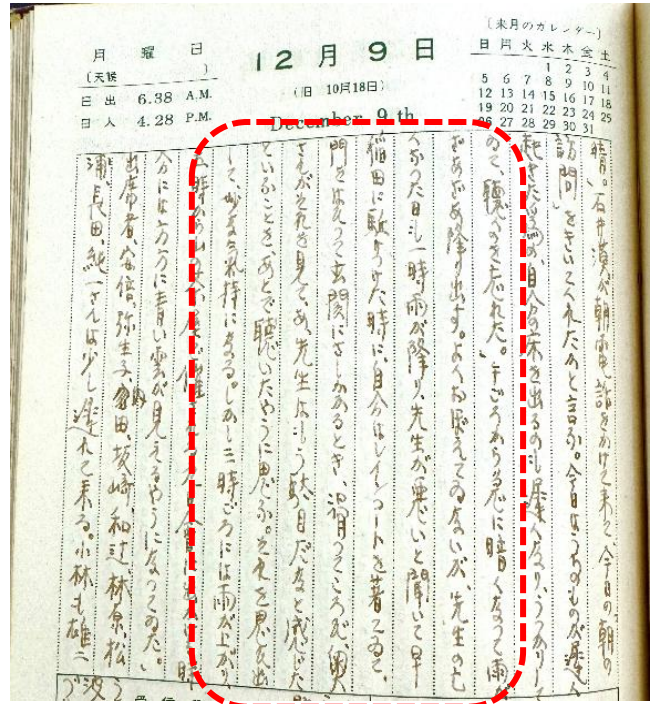 月　曜　日
(天候　　　)
日出 6.38 A.M.
日入 4.28 P.M.
12月9日
(旧 10月18日)
December 9 th
〔来月のカレンダー〕
日 月 火 水 木 金 土
1 2 3 4
5 6 7 8 9 10 11
12 13 14 15 16 17 18
19 20 21 22 23 24 25
26 27 28 29 30 31
晴。石井漠が朝電話をかけて来て、今日の朝の
訪問」をきいてくれたかと言ふ。今日はうちのものが遅く
起きた為め、自分の床を出るのも遅くなり、うつかりして
ゐて、聴くのを忘れた。」午ごろから急に暗くなつて雨が
ざあざあ降り出す。よくおぼえてゐないが、先生の亡
くなつた日も一時雨が降り、先生が悪いと聞いて早
稲田に駈けつけた時に自分はレインコートを着てゐて、
門をはいつて玄関にさしかかるとき、滑つてころび、奥
さんがそれを見て、あ、先生はもう駄目だなと感じた
といふことを、あとで聴いたやうに思ふ。それを思ひ出
して、妙な気持になる。しかし三時ごろには雨が上がり
五時から
分には方方に青い雲が見えるやうになつてゐた。」
出席者、安倍、弥生子、内田、坂崎、和辻、林原、松
浦、長田、純一さんは少し遅れて来る。小林も雄二
受信